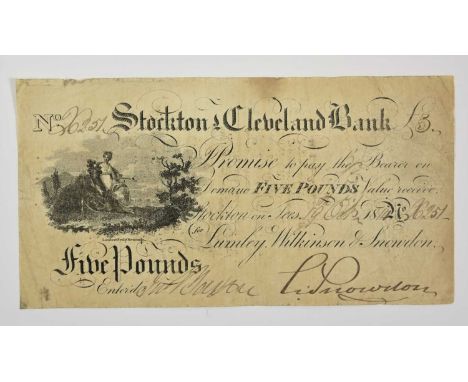 No. Stockton & Cleveland Bank £5
Promise to pay the Bearer on
Demand FIVE POUNDS Value received
Stockton on Tees
for Lumley, Wilkinson & Snowdon,
Five Pounds
Entered
Snowdon